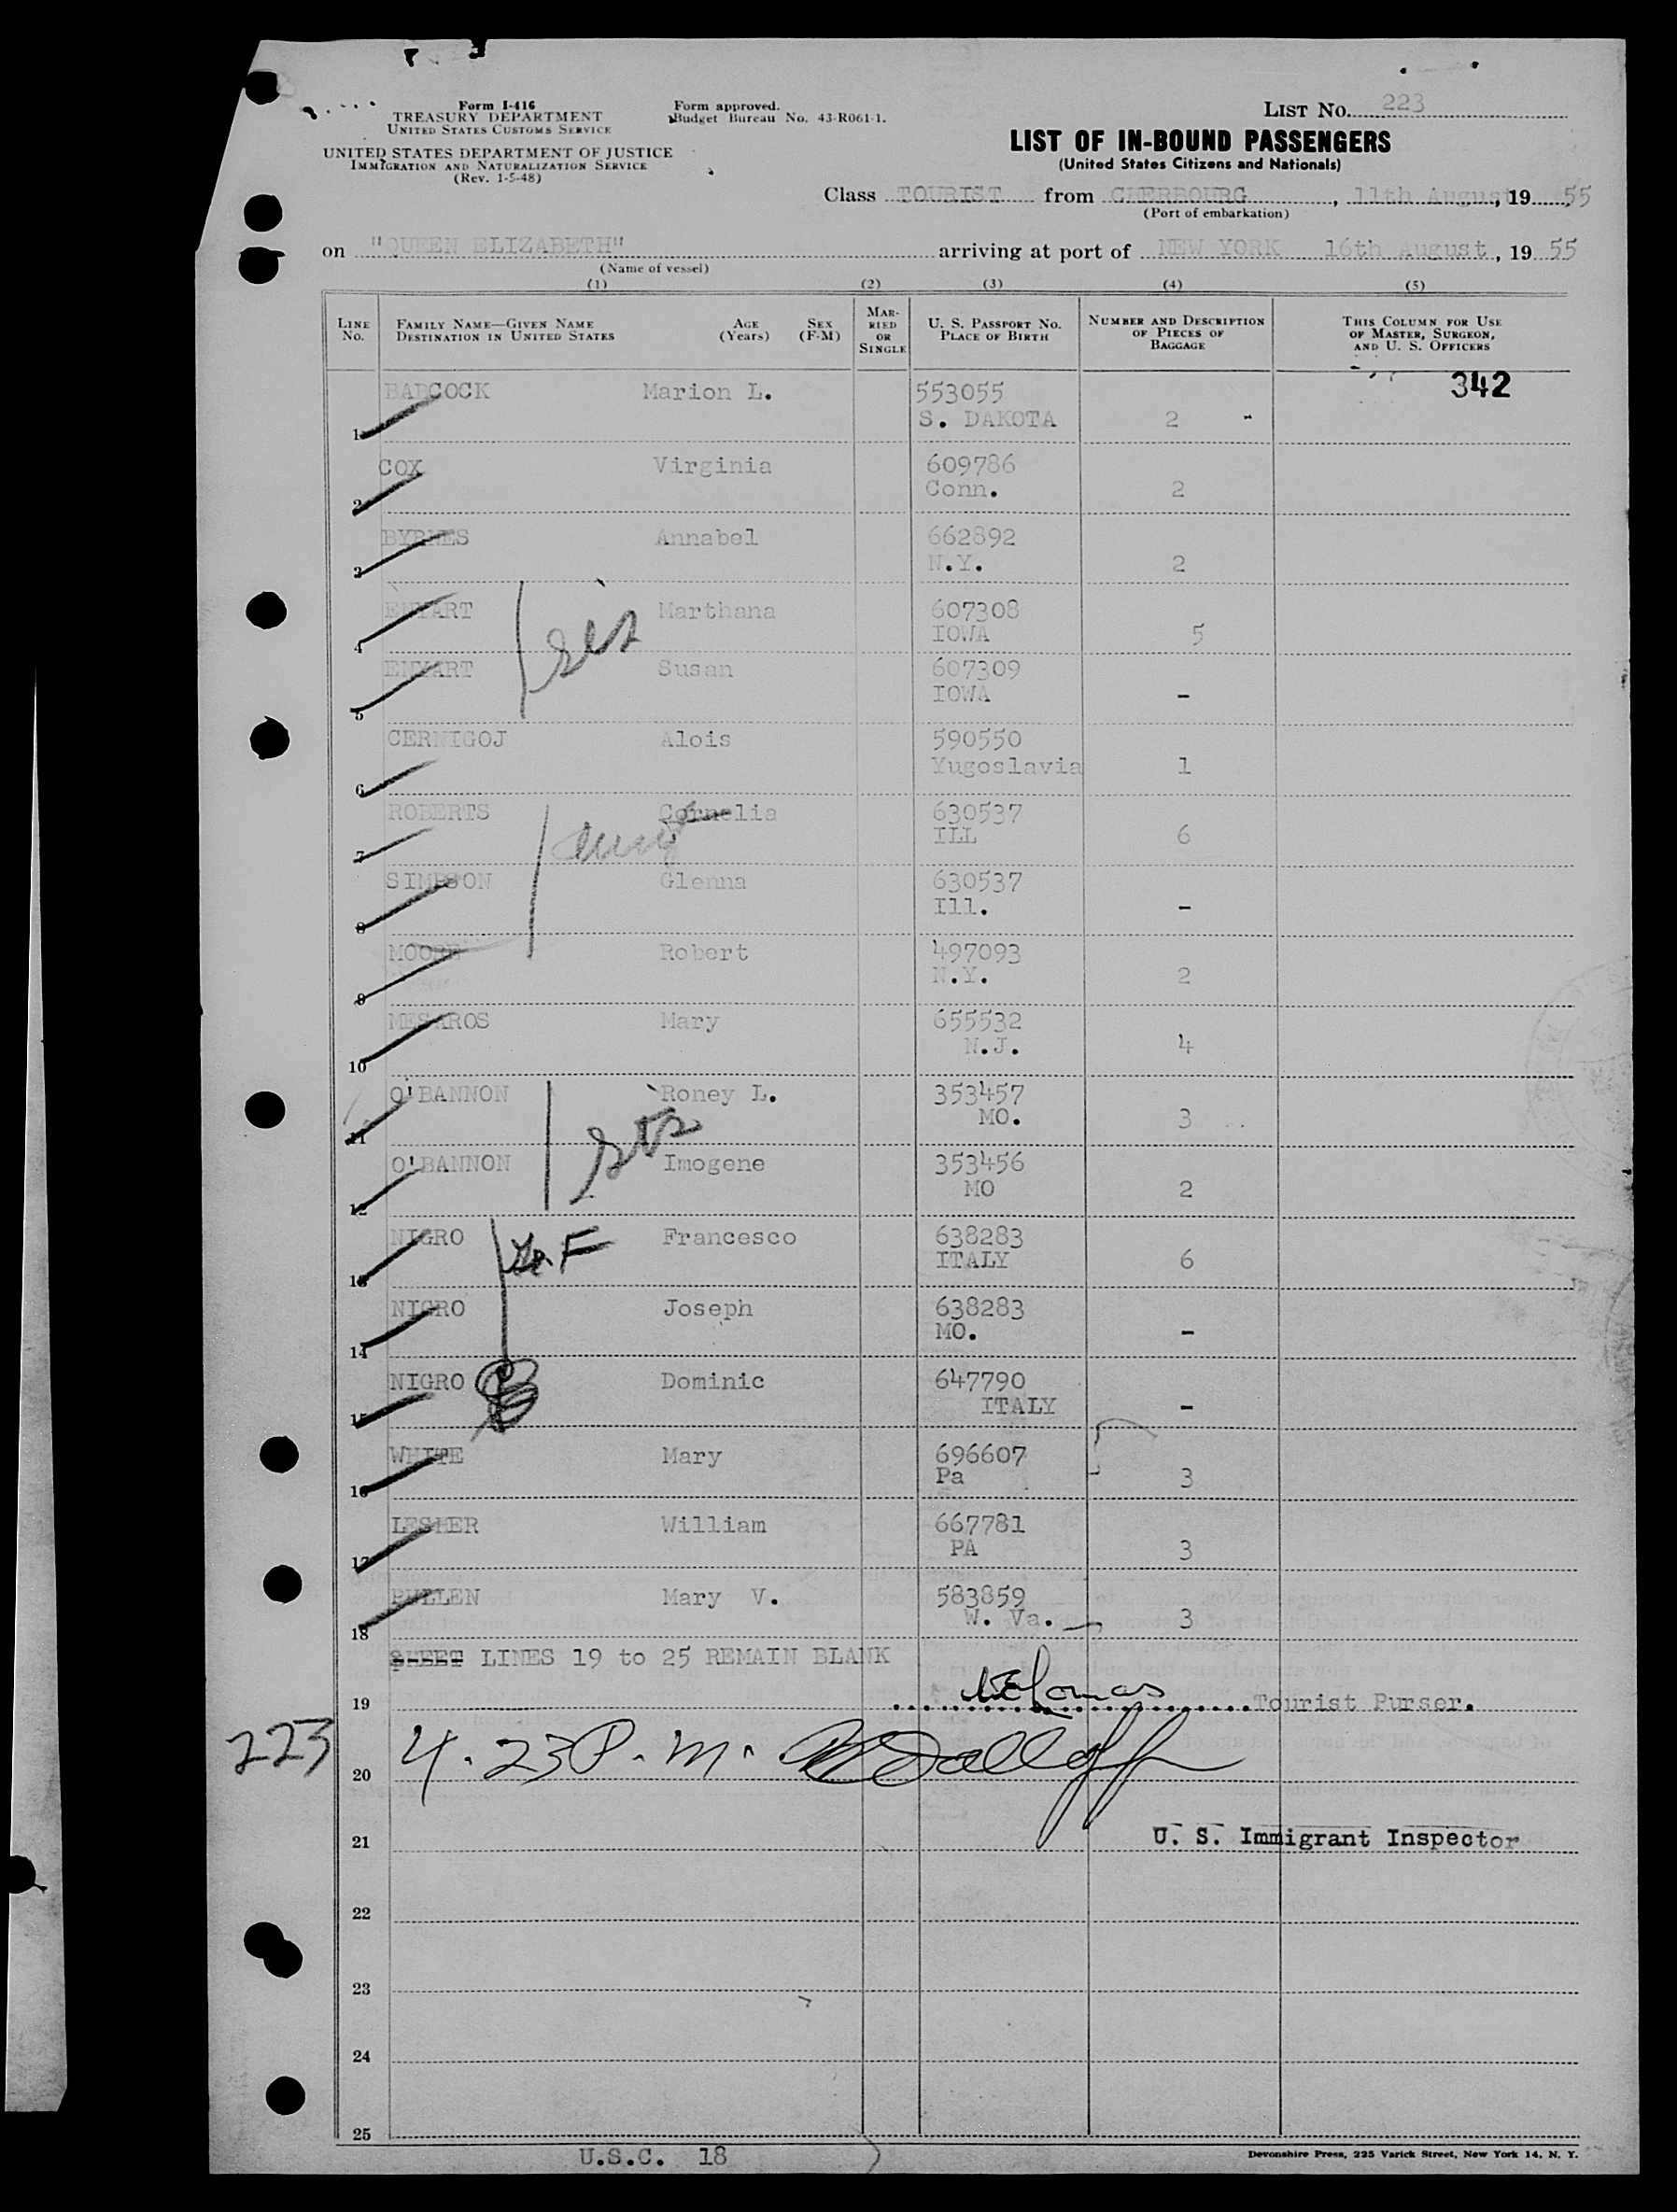 Form I-416
TREASURY DEPARTMENT
UNITED STATES CUSTOMS SERVICE
UNITED STATES DEPARTMENT OF JUSTICE
IMMIGRATION AND NATURALIZATION SERVICE
(Rev. 1-5-48)
Form approved.
Budget Bureau No. 43-R061-1.
LIST No. 223
LIST OF IN-BOUND PASSENGERS
(United States Citizens and Nationals)
Class TOURIST from CHERBOURG, 11th August, 19 55
(Port of embarkation)
on "QUEEN ELIZABETH" arriving at port of NEW YORK 16th August, 19 55
(Name of vessel)
(1) (2) (3) (4) (5)
LINE No. FAMILY NAME—GIVEN NAME DESTINATION IN UNITED STATES AGE (Years) SEX (F-M) MARRIED OR SINGLE U. S. PASSPORT No. PLACE OF BIRTH NUMBER AND DESCRIPTION OF PIECES OF BAGGAGE THIS COLUMN FOR USE OF MASTER, SURGEON, AND U. S. OFFICERS
342
BADCOCK Marion L. 553055
1 S. DAKOTA 2 -
COX Virginia 609786
2 Conn. 2
BYRNES Annabel 662892
3 N.Y. 2
ENYART Marthana 607308
4 IOWA 5
sis
ENYART Susan 607309
5 IOWA -
CERNIGOJ Alois 590550
6 Yugoslavia 1
ROBERTS Cornelia 630537
7 ILL 6
SIMPSON Glenna 630537
8 Ill. -
MOORE Robert 497093
9 N.Y. 2
MESAROS Mary 655532
10 N.J. 4
O'BANNON Roney L. 353457
11 MO. 3
O'BANNON Imogene 353456
12 MO 2
NIGRO Francesco 638283
13 ITALY 6
NIGRO Joseph 638283
14 MO. -
NIGRO Dominic 647790
15 ITALY -
WHITE Mary 696607
16 Pa 3
LESHER William 667781
17 PA 3
PULLEN Mary V. 583859
18 W. Va. 3
SHEET LINES 19 to 25 REMAIN BLANK
19 Tourist Purser.
223 20 4.23 P.m.
21 U. S. Immigrant Inspector
22
23
24
25
U.S.C. 18
Devonshire Press, 225 Varick Street, New York 14, N. Y.